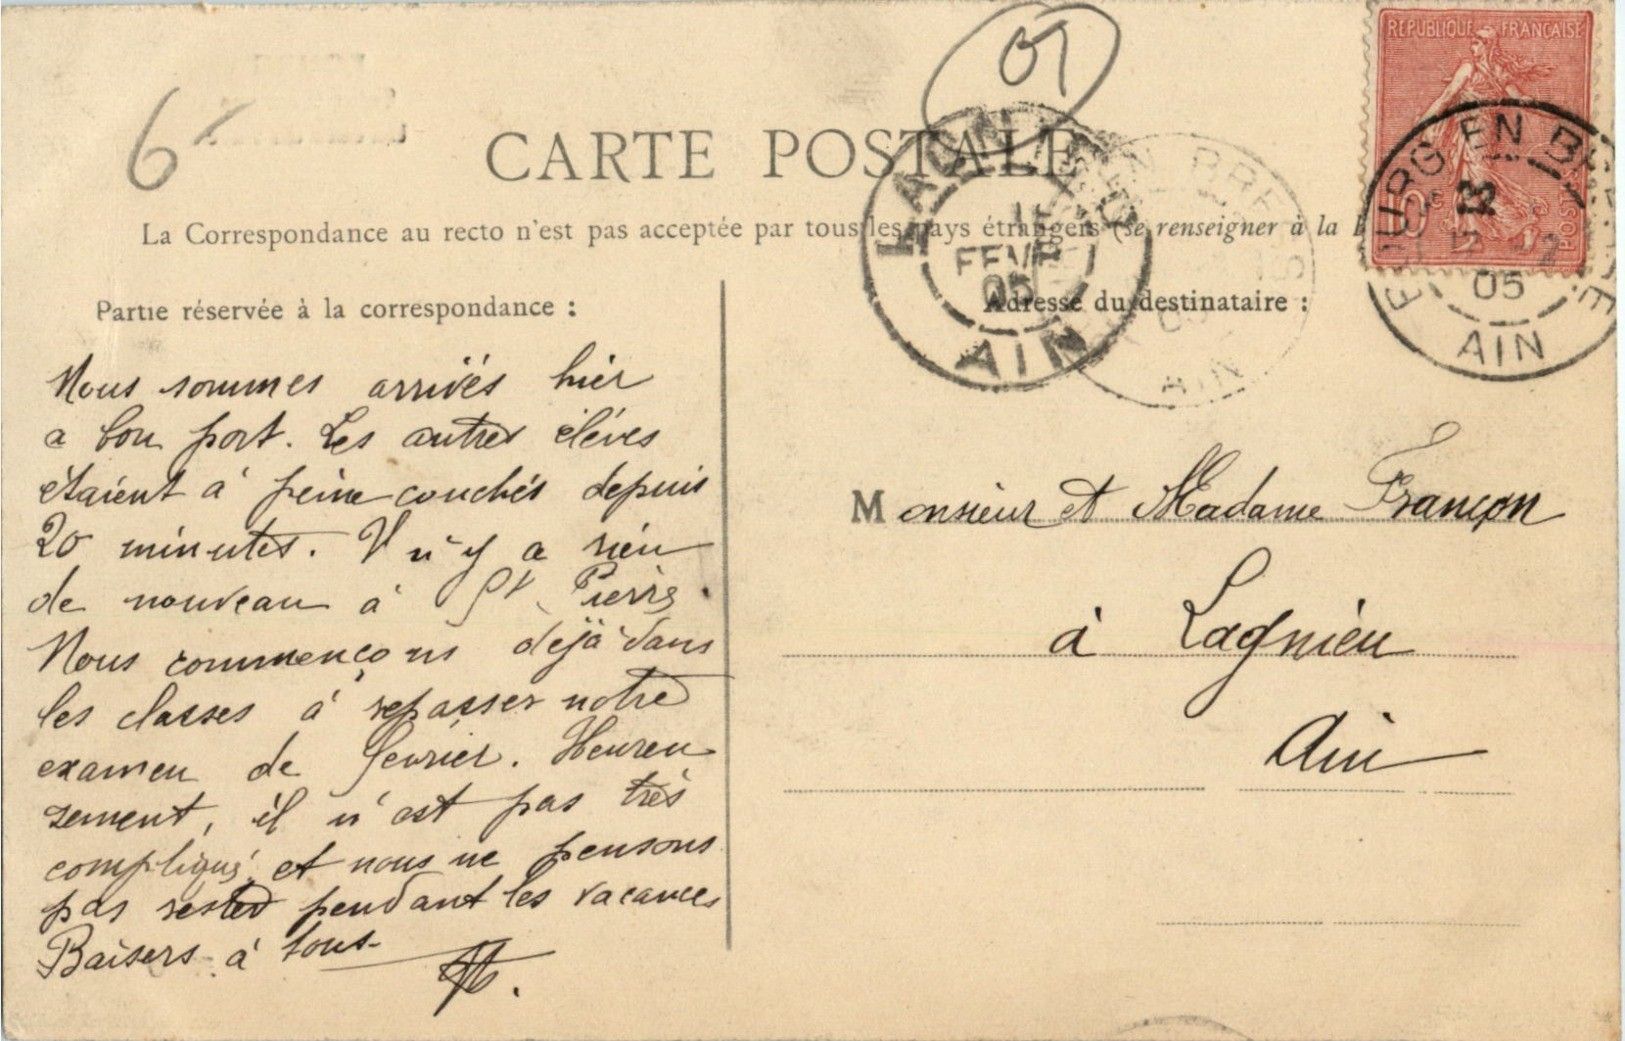 6
OT
REPUBLIQUE FRANÇAISE
CARTE POSTALE
La Correspondance au recto n'est pas acceptée par tous les pays étrangers (se renseigner à la
LAGNIEU
FEVR
05
AIN
BRESSE
AIN
BOURG EN BRESSE
12 - 2
05
AIN
POSTES
Partie réservée à la correspondance :
Nous sommes arrivés hier
a bon port. Les autres élèves
étaient à peine couchés depuis
20 minutes. Il n'y a rien
de nouveau à St Pierre.
Nous commençons dejà dans
les classes à repasser notre
examen de fevrier. Heureu
sement, il n'est pas très
compliqué et nous ne pensons
pas rester pendant les vacances
Baisers à tous
Adresse du destinataire :
Monsieur et Madame Françon
à Lagnieu
Ain